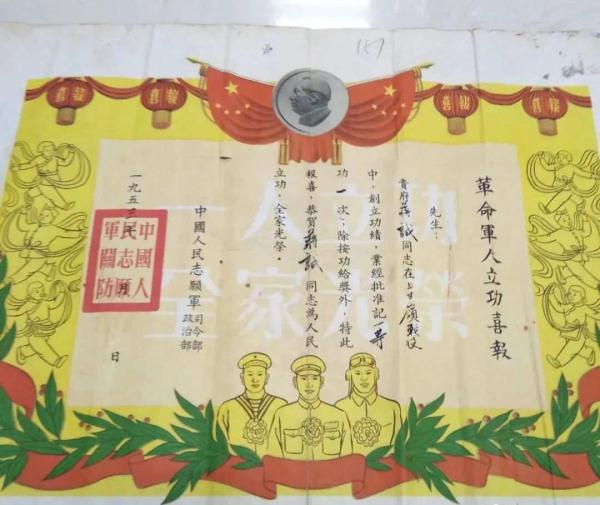 喜
報
喜
報
革命軍人立功喜報
先生：
貴府蔣誠同志在上甘嶺戰役
中，創立功績，業經批准記一等
功一次；除按功給獎外，特此
報喜，恭賀蔣誠同志為人民
立功，全家光榮。
中國人民志願軍司令部
政治部
一九五三年 月 日
中國人
民志願
軍關防
一人立功
全家光榮